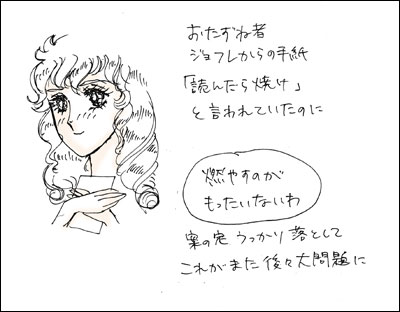 おたずね者
ジョフレからの手紙
「読んだら焼け」
と言われていたのに
燃やすのが
もったいないわ
案の定 うっかり落として
これがまた後々大問題に